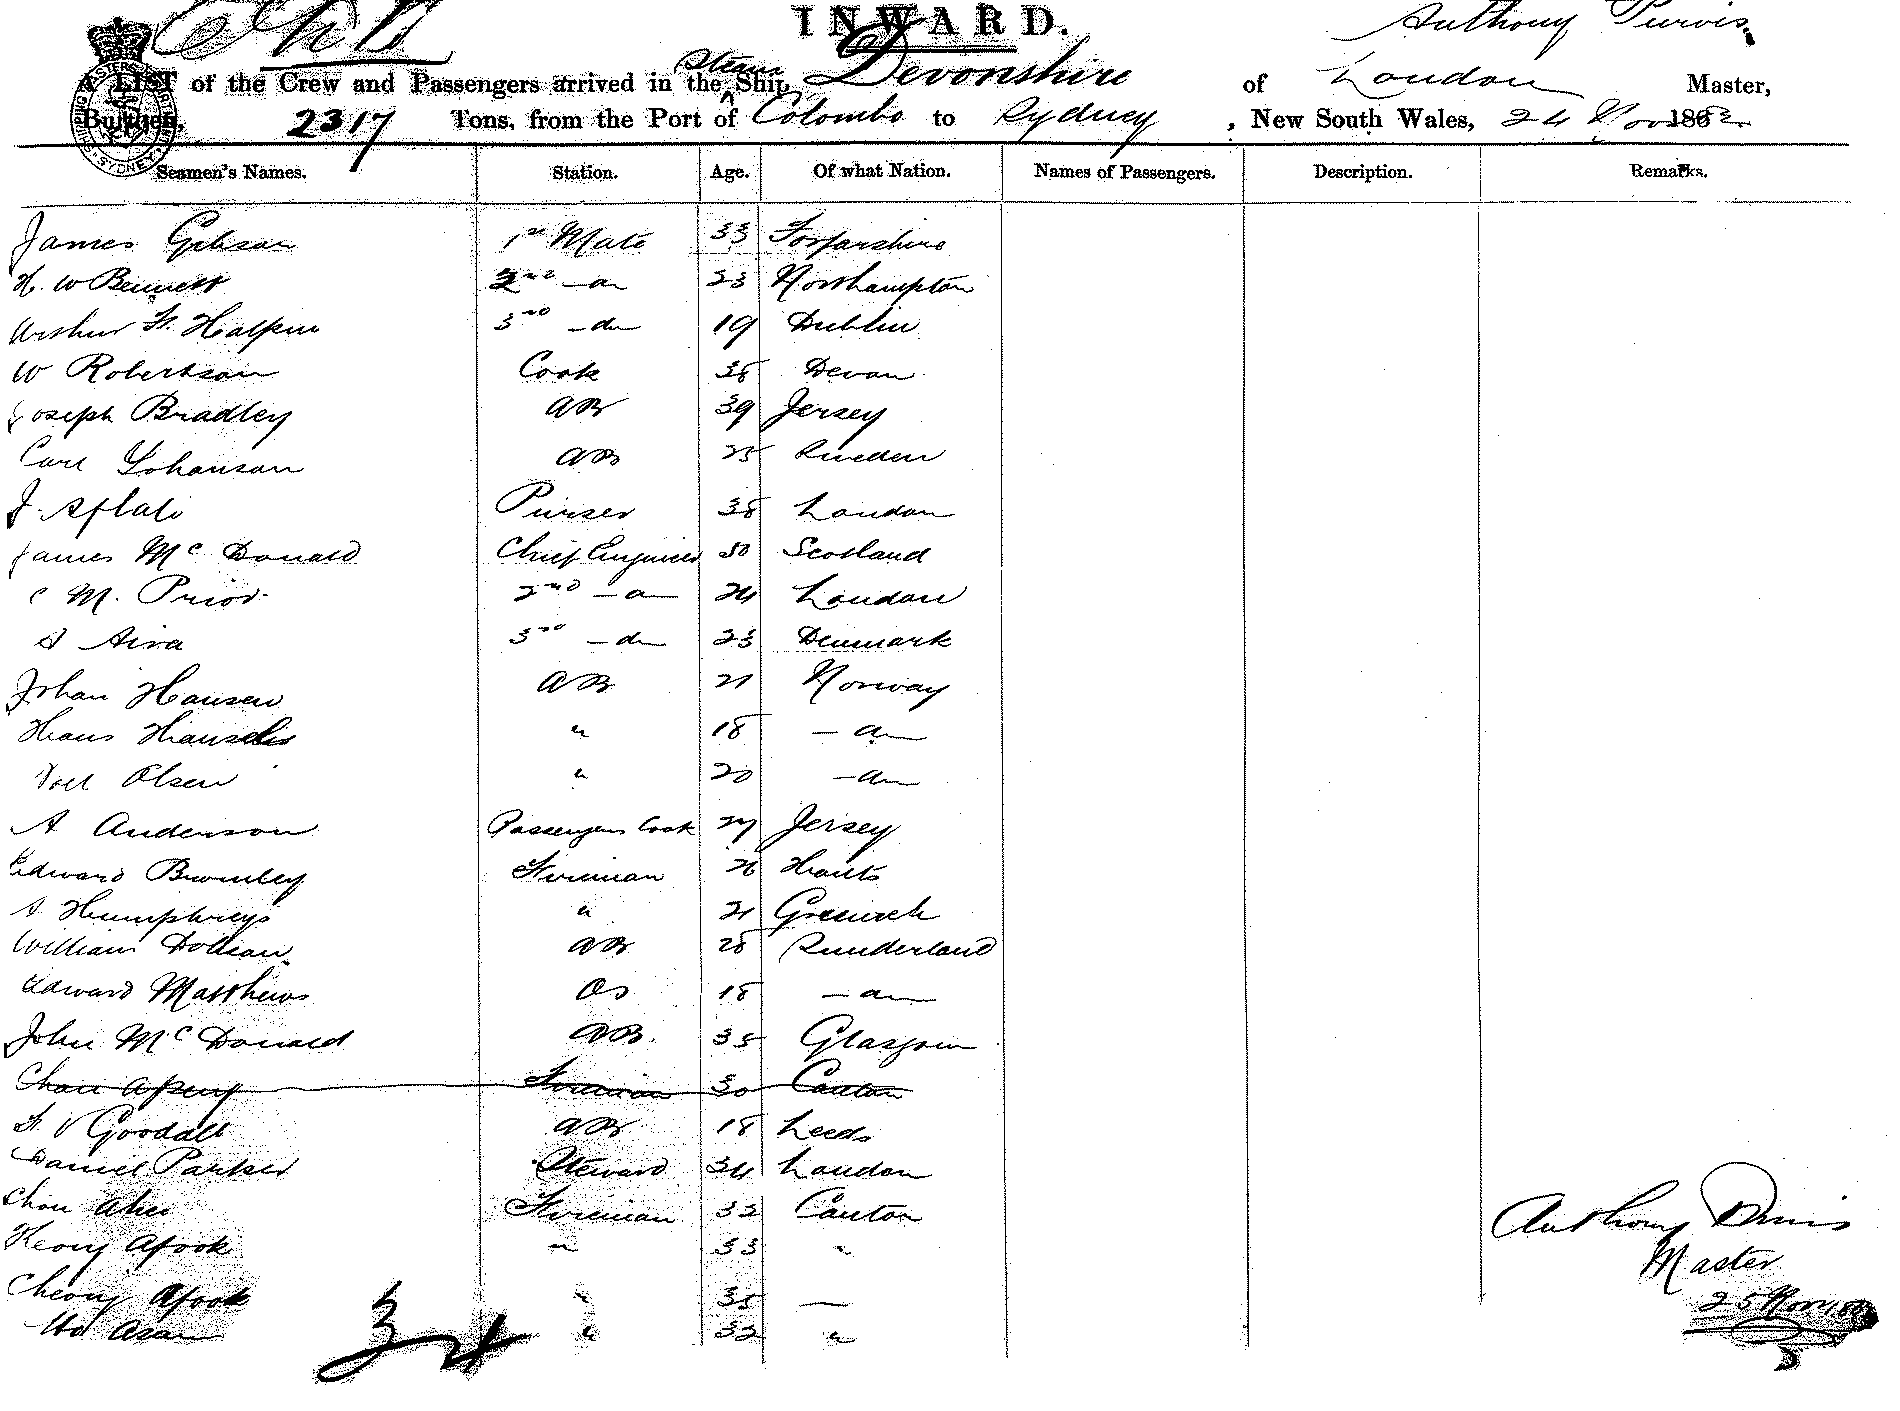 INWARD.
Anthony Purvis
A LIST of the Crew and Passengers arrived in the Steam Ship, Devonshire of London Master,
Burthen, 2317 Tons, from the Port of Colombo to Sydney, New South Wales, 24 Nov 188
Seamen's Names. Station. Age. Of what Nation. Names of Passengers. Description. Remarks.
James Gibson 1st Mate 33 Forfarshire
H. W Bennett 2nd -do 23 Northampton
Arthur F. Halpin 3rd -do 19 Dublin
W Robertson Cook 38 Devon
Joseph Bradley AB 39 Jersey
Carl Johanson AB 25 Sweden
J. Aflalo Purser 38 London
James McDonald Chief Engineer 50 Scotland
C M. Prior 2nd -do 24 London
3rd -do 23 Denmark
Johan Hansen AB 21 Norway
Hans " 18 -do
Olsen " 20 -do
A Anderson Passengers Cook 27 Jersey
Edward Bromley Fireman 26 Hants
A Humphreys " 21 Greenwich
William Dobson AB 28 Sunderland
Edward Matthews OS 18 -do
John McDonald AB. 35 Glasgow
Chan Fireman 30 Canton
F. V Goodall AB 18 Leeds
Daniel Parker Steward 34 London
Chou Fireman 32 Canton
Keong Afook " 33 "
Cheong Afook " 35 —
Ho Asan " 32 "
Anthony Purvis
Master
25 Nov